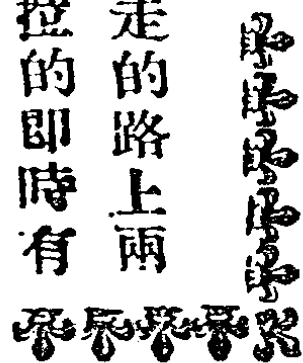 走的路上兩
的即時有